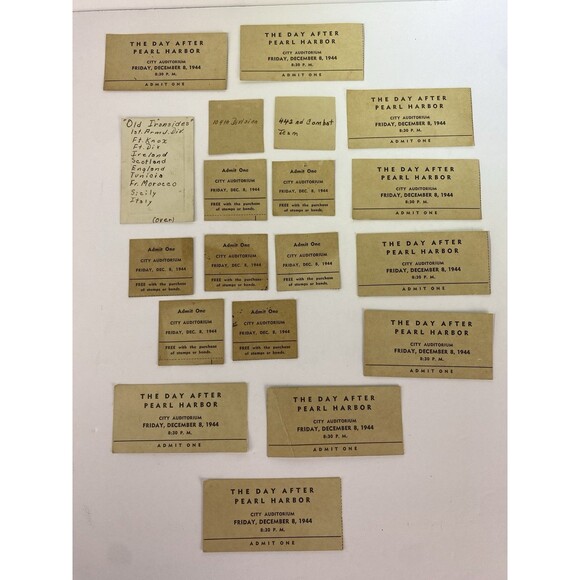 THE DAY AFTER
PEARL HARBOR
CITY AUDITORIUM
FRIDAY, DECEMBER 8, 1944
8:30 P. M.
ADMIT ONE
THE DAY AFTER
PEARL HARBOR
CITY AUDITORIUM
FRIDAY, DECEMBER 8, 1944
8:30 P. M.
ADMIT ONE
"Old Ironsides"
1st. Armd. Div.
Ft. Knox
Ft. Dix
Ireland
Scotland
England
Tunicia
Fr. Morocco
Sicily
Italy
(over)
Division
442nd Combat
Team
THE DAY AFTER
PEARL HARBOR
CITY AUDITORIUM
FRIDAY, DECEMBER 8, 1944
8:30 P. M.
ADMIT ONE
Admit One
CITY AUDITORIUM
FRIDAY, DEC. 8, 1944
FREE with the purchase
of stamps or bonds.
Admit One
CITY AUDITORIUM
FRIDAY, DEC. 8, 1944
FREE with the purchase
of stamps or bonds.
THE DAY AFTER
PEARL HARBOR
CITY AUDITORIUM
FRIDAY, DECEMBER 8, 1944
8:30 P. M.
ADMIT ONE
Admit One
CITY AUDITORIUM
FRIDAY, DEC. 8, 1944
FREE with the purchase
of stamps or bonds.
Admit One
CITY AUDITORIUM
FRIDAY, DEC. 8, 1944
FREE with the purchase
of stamps or bonds.
Admit One
CITY AUDITORIUM
FRIDAY, DEC. 8, 1944
FREE with the purchase
of stamps or bonds.
THE DAY AFTER
PEARL HARBOR
CITY AUDITORIUM
FRIDAY, DECEMBER 8, 1944
8:30 P. M.
ADMIT ONE
Admit One
CITY AUDITORIUM
FRIDAY, DEC. 8, 1944
FREE with the purchase
of stamps or bonds.
Admit One
CITY AUDITORIUM
FRIDAY, DEC. 8, 1944
FREE with the purchase
of stamps or bonds.
THE DAY AFTER
PEARL HARBOR
CITY AUDITORIUM
FRIDAY, DECEMBER 8, 1944
8:30 P. M.
ADMIT ONE
THE DAY AFTER
PEARL HARBOR
CITY AUDITORIUM
FRIDAY, DECEMBER 8, 1944
8:30 P. M.
ADMIT ONE
THE DAY AFTER
PEARL HARBOR
CITY AUDITORIUM
FRIDAY, DECEMBER 8, 1944
8:30 P. M.
ADMIT ONE
THE DAY AFTER
PEARL HARBOR
CITY AUDITORIUM
FRIDAY, DECEMBER 8, 1944
8:30 P. M.
ADMIT ONE